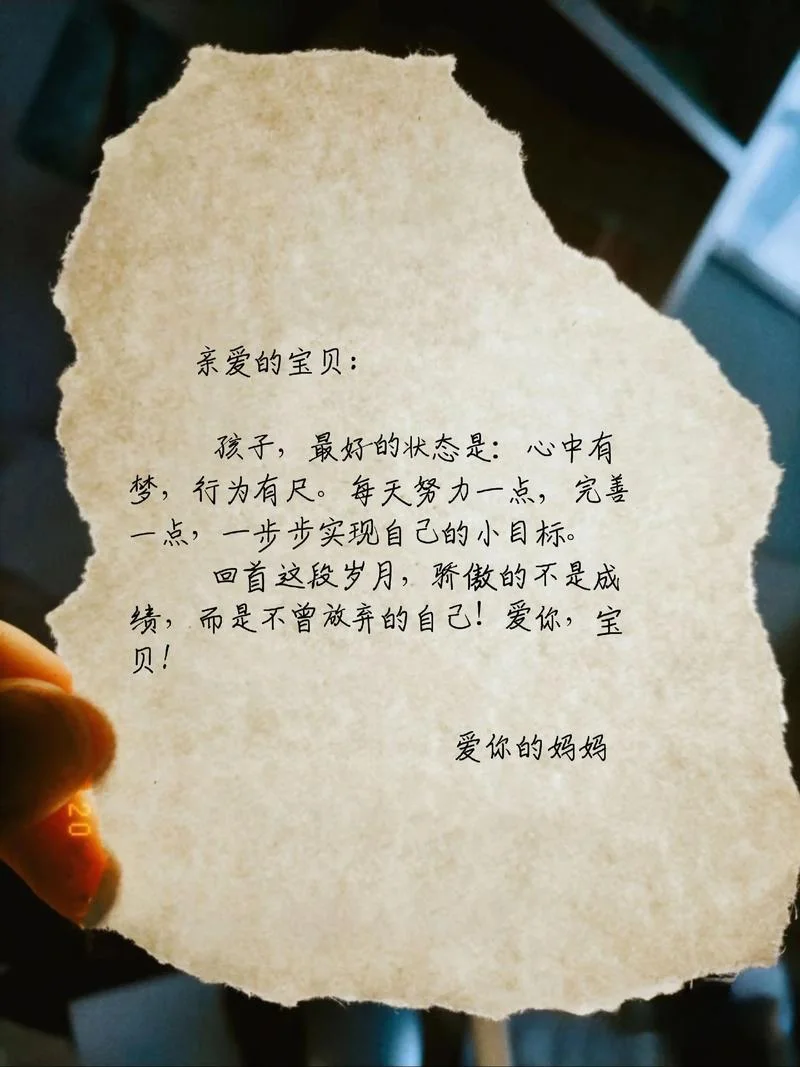 亲爱的宝贝：
孩子，最好的状态是：心中有
梦，行为有尺。每天努力一点，完善
一点，一步步实现自己的小目标。
回首这段岁月，骄傲的不是成
绩，而是不曾放弃的自己！爱你，宝
贝！
爱你的妈妈
20